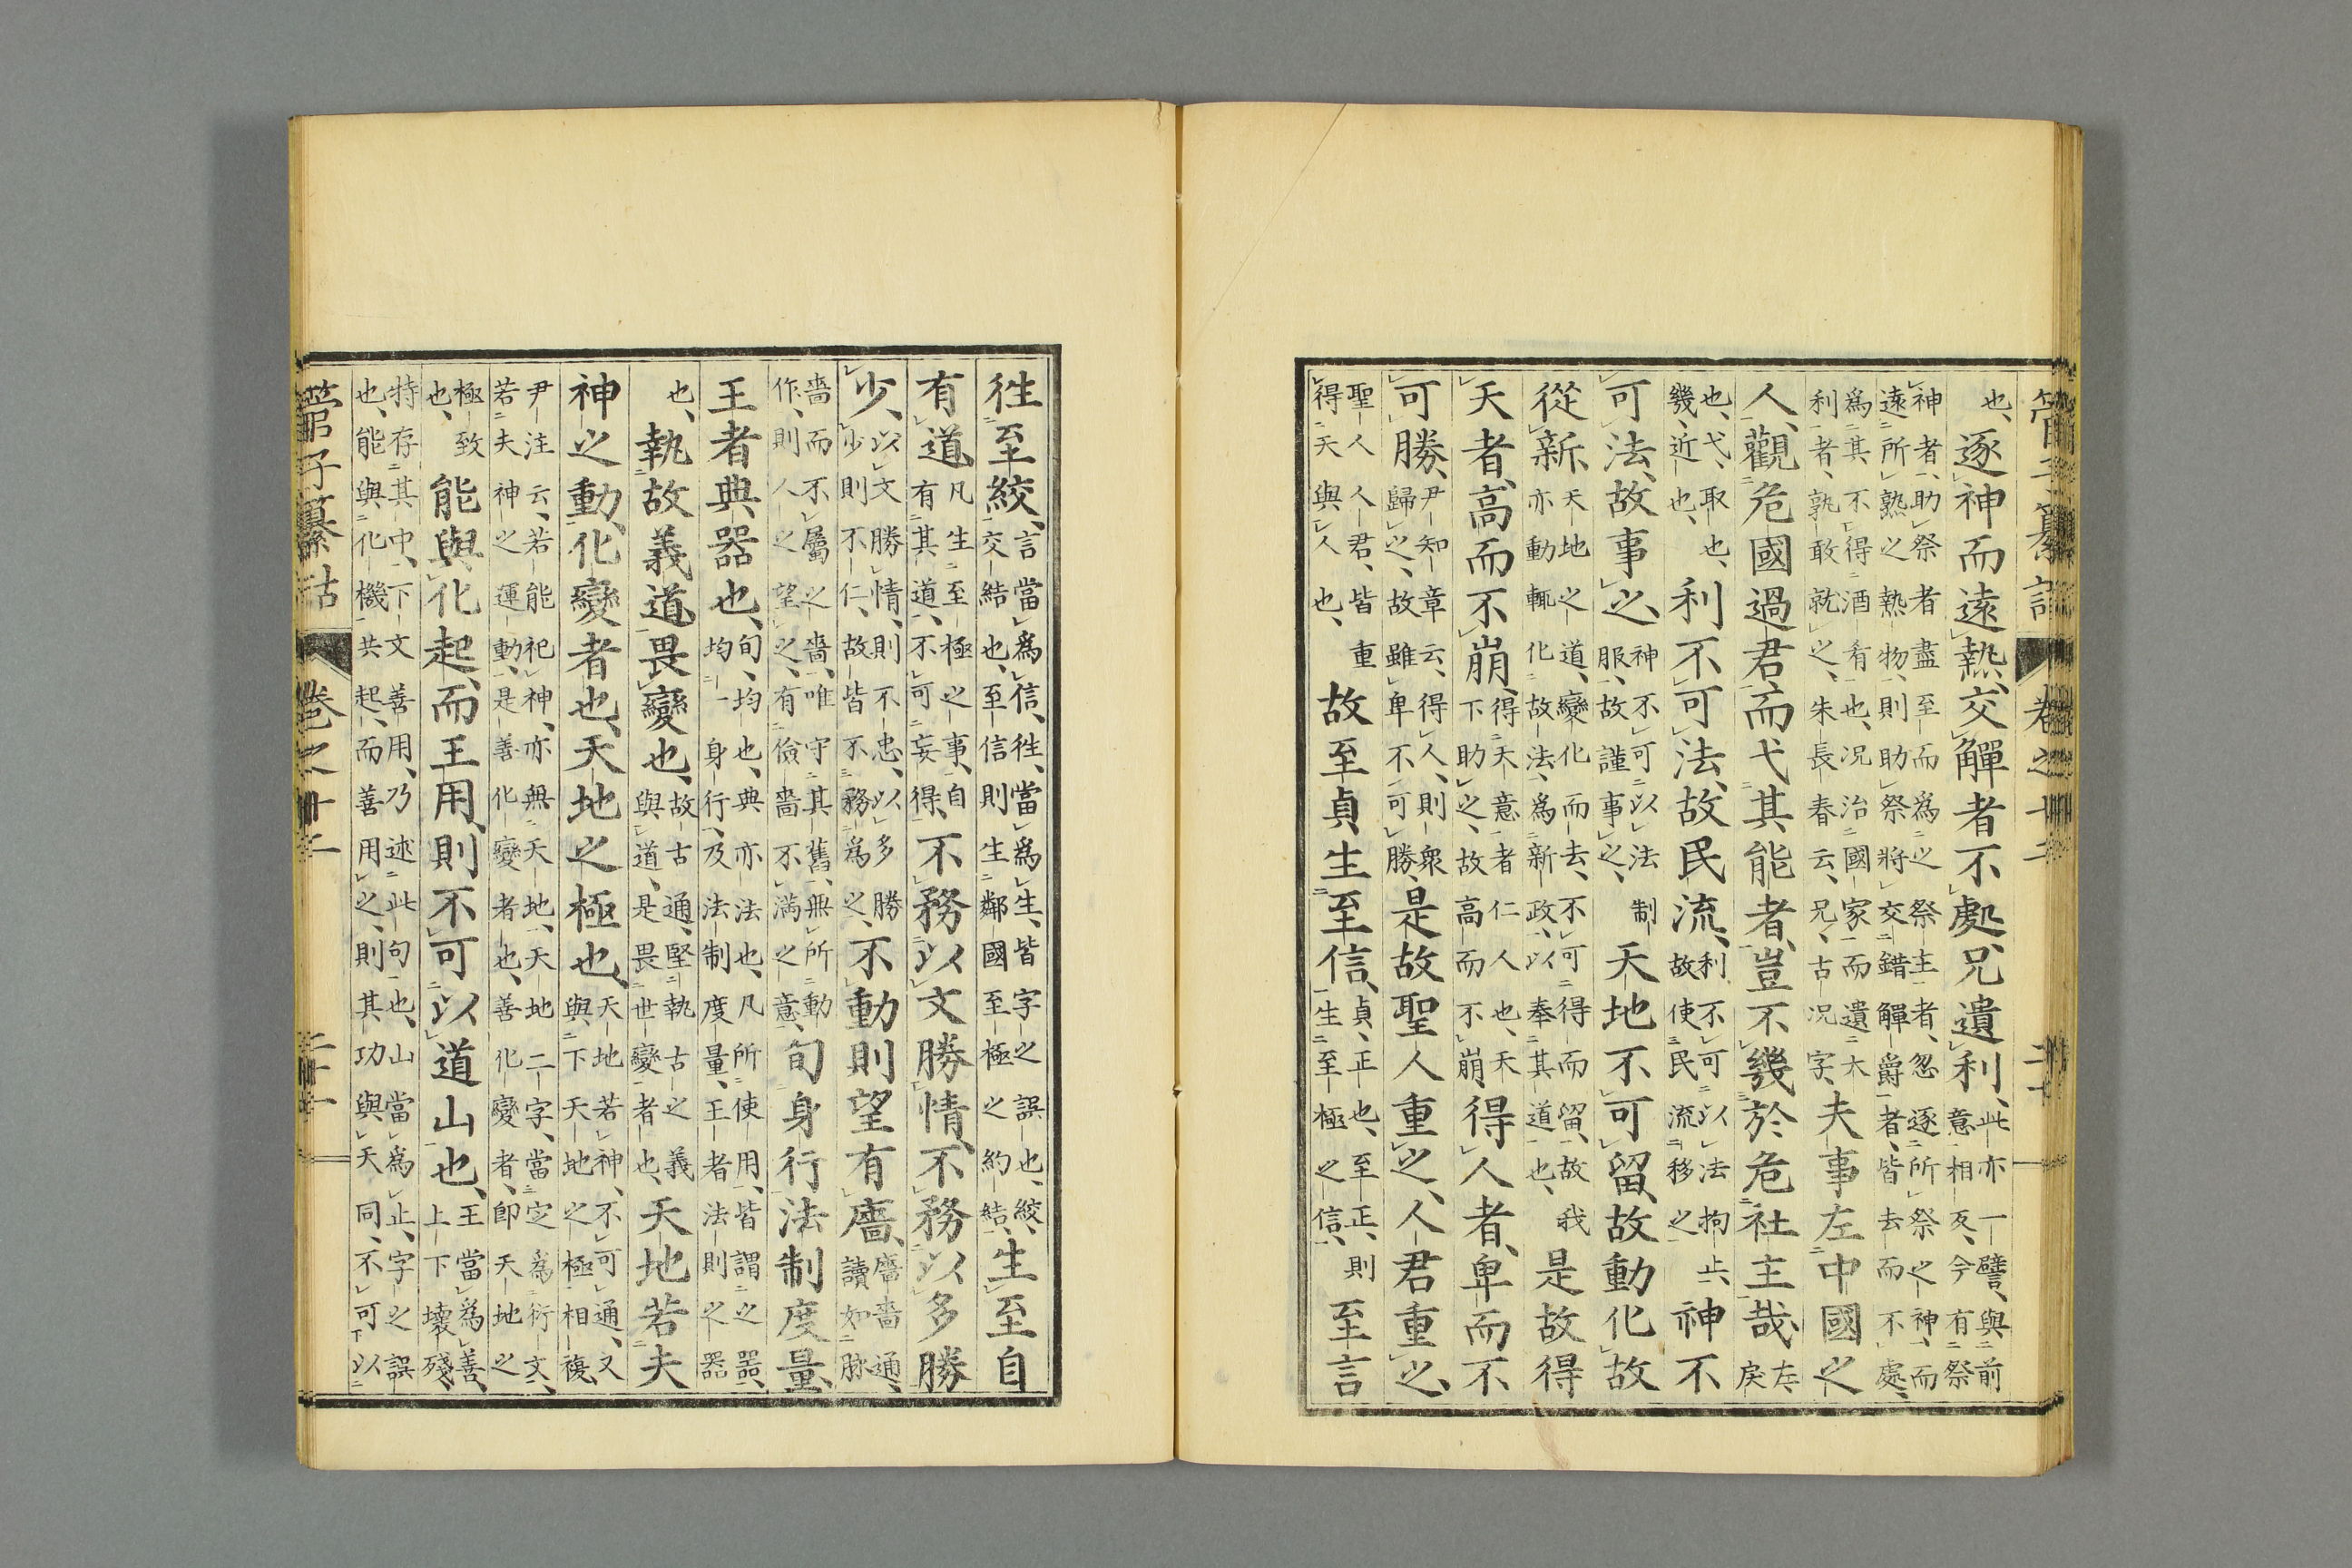 也、逐神而遠熱、交觶者不處、兄遺利、此亦一譬、與前意相反、今有祭
神者、助祭者盡至而為之祭主者、忽逐所祭之神、而遠所熟之熱物、則助祭將交錯觶爵者、皆去而不處、
為其不得酒肴也、況治國家而遺大利者、孰敢就之、朱長春云、兄、古況字、夫事左中國之
人、觀危國過君、而弋其能者、豈不幾於危社主哉、左、戾
也、弋、取也、幾、近也、利不可法、故民流、利不可以法拘止、故使民流移之神不
可法、故事之、神不可以法制服、故謹事之、天地不可留、故動化、故
從新、天地之道、變化而去、不可得而留、故我亦動輒化故法、為新政、以奉其道也、是故得
天者、高而不崩、得天意者仁人也、天下助之、故高而不崩得人者、卑而不
可勝、尹知章云、得人、則衆歸之、故雖卑不可勝、是故聖人重之、人君重之、
聖人人君、皆重得天與人也、故至貞生至信、貞、正也、至正、則生至極之信、至言
徃至絞、言當為信、徃、當為生、皆字之誤也、絞、交結也、至信則生鄰國至極之約結、生至自
有道、凡生至極之事、自有其道、不可妄得、不務以文勝情、不務以多勝
少、以文勝情、則不忠、以多勝少則不仁、故皆不務為之、不動則望有廧、廧嗇通、讀如脉
嗇而不屬之嗇、唯守其舊、無所動作、則人之望之、有儉嗇不滿之意、旬身行法制度量、
王者典器也、旬、均也、典亦法也、凡所使用、皆謂之噐、均一身行、及法制度量、王者法則之器
也、執故義道、畏變也、故古通、堅執古之義與道、是畏世變者也、天地若夫
神之動、化變者也、天地之極也、天地若神、不可通、又與下天地之極相複、
尹注云、若能祀神、亦無天地、天地二字、當定為衍文、若夫神之運動、是善化變者也、善化變者、卽天地之
極致也、能與化起、而王用、則不可以道山也、王當為善、上下壞殘、
特存其中、下文善用、乃述此句也、山當為止、字之誤也、能與化機共起、而善用之、則其功與天同、不可以
管子纂詁　卷之十二　二十一